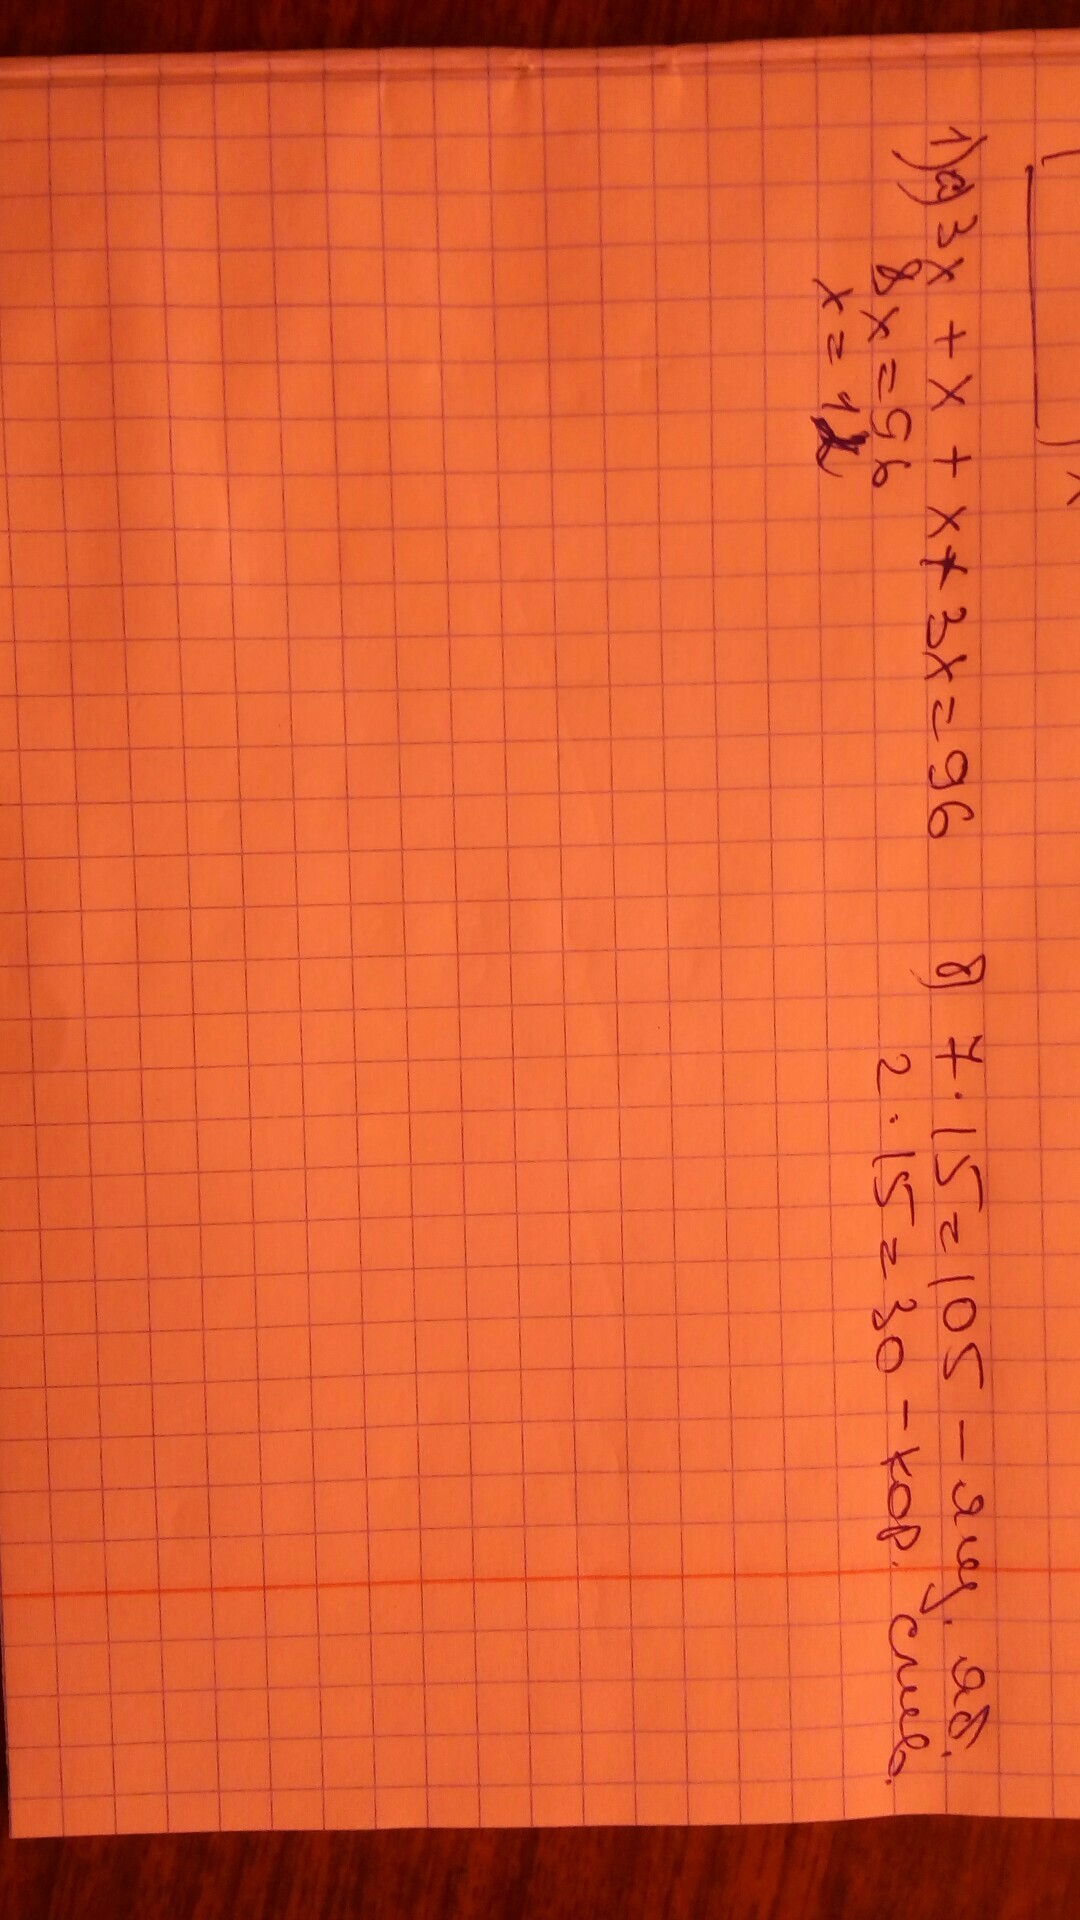 1) а) 3x + x + x + 3x = 96
8x = 96
x = 12
б) 7 · 15 = 105 - ящ. яб.
2 · 15 = 30 - кор. слив.